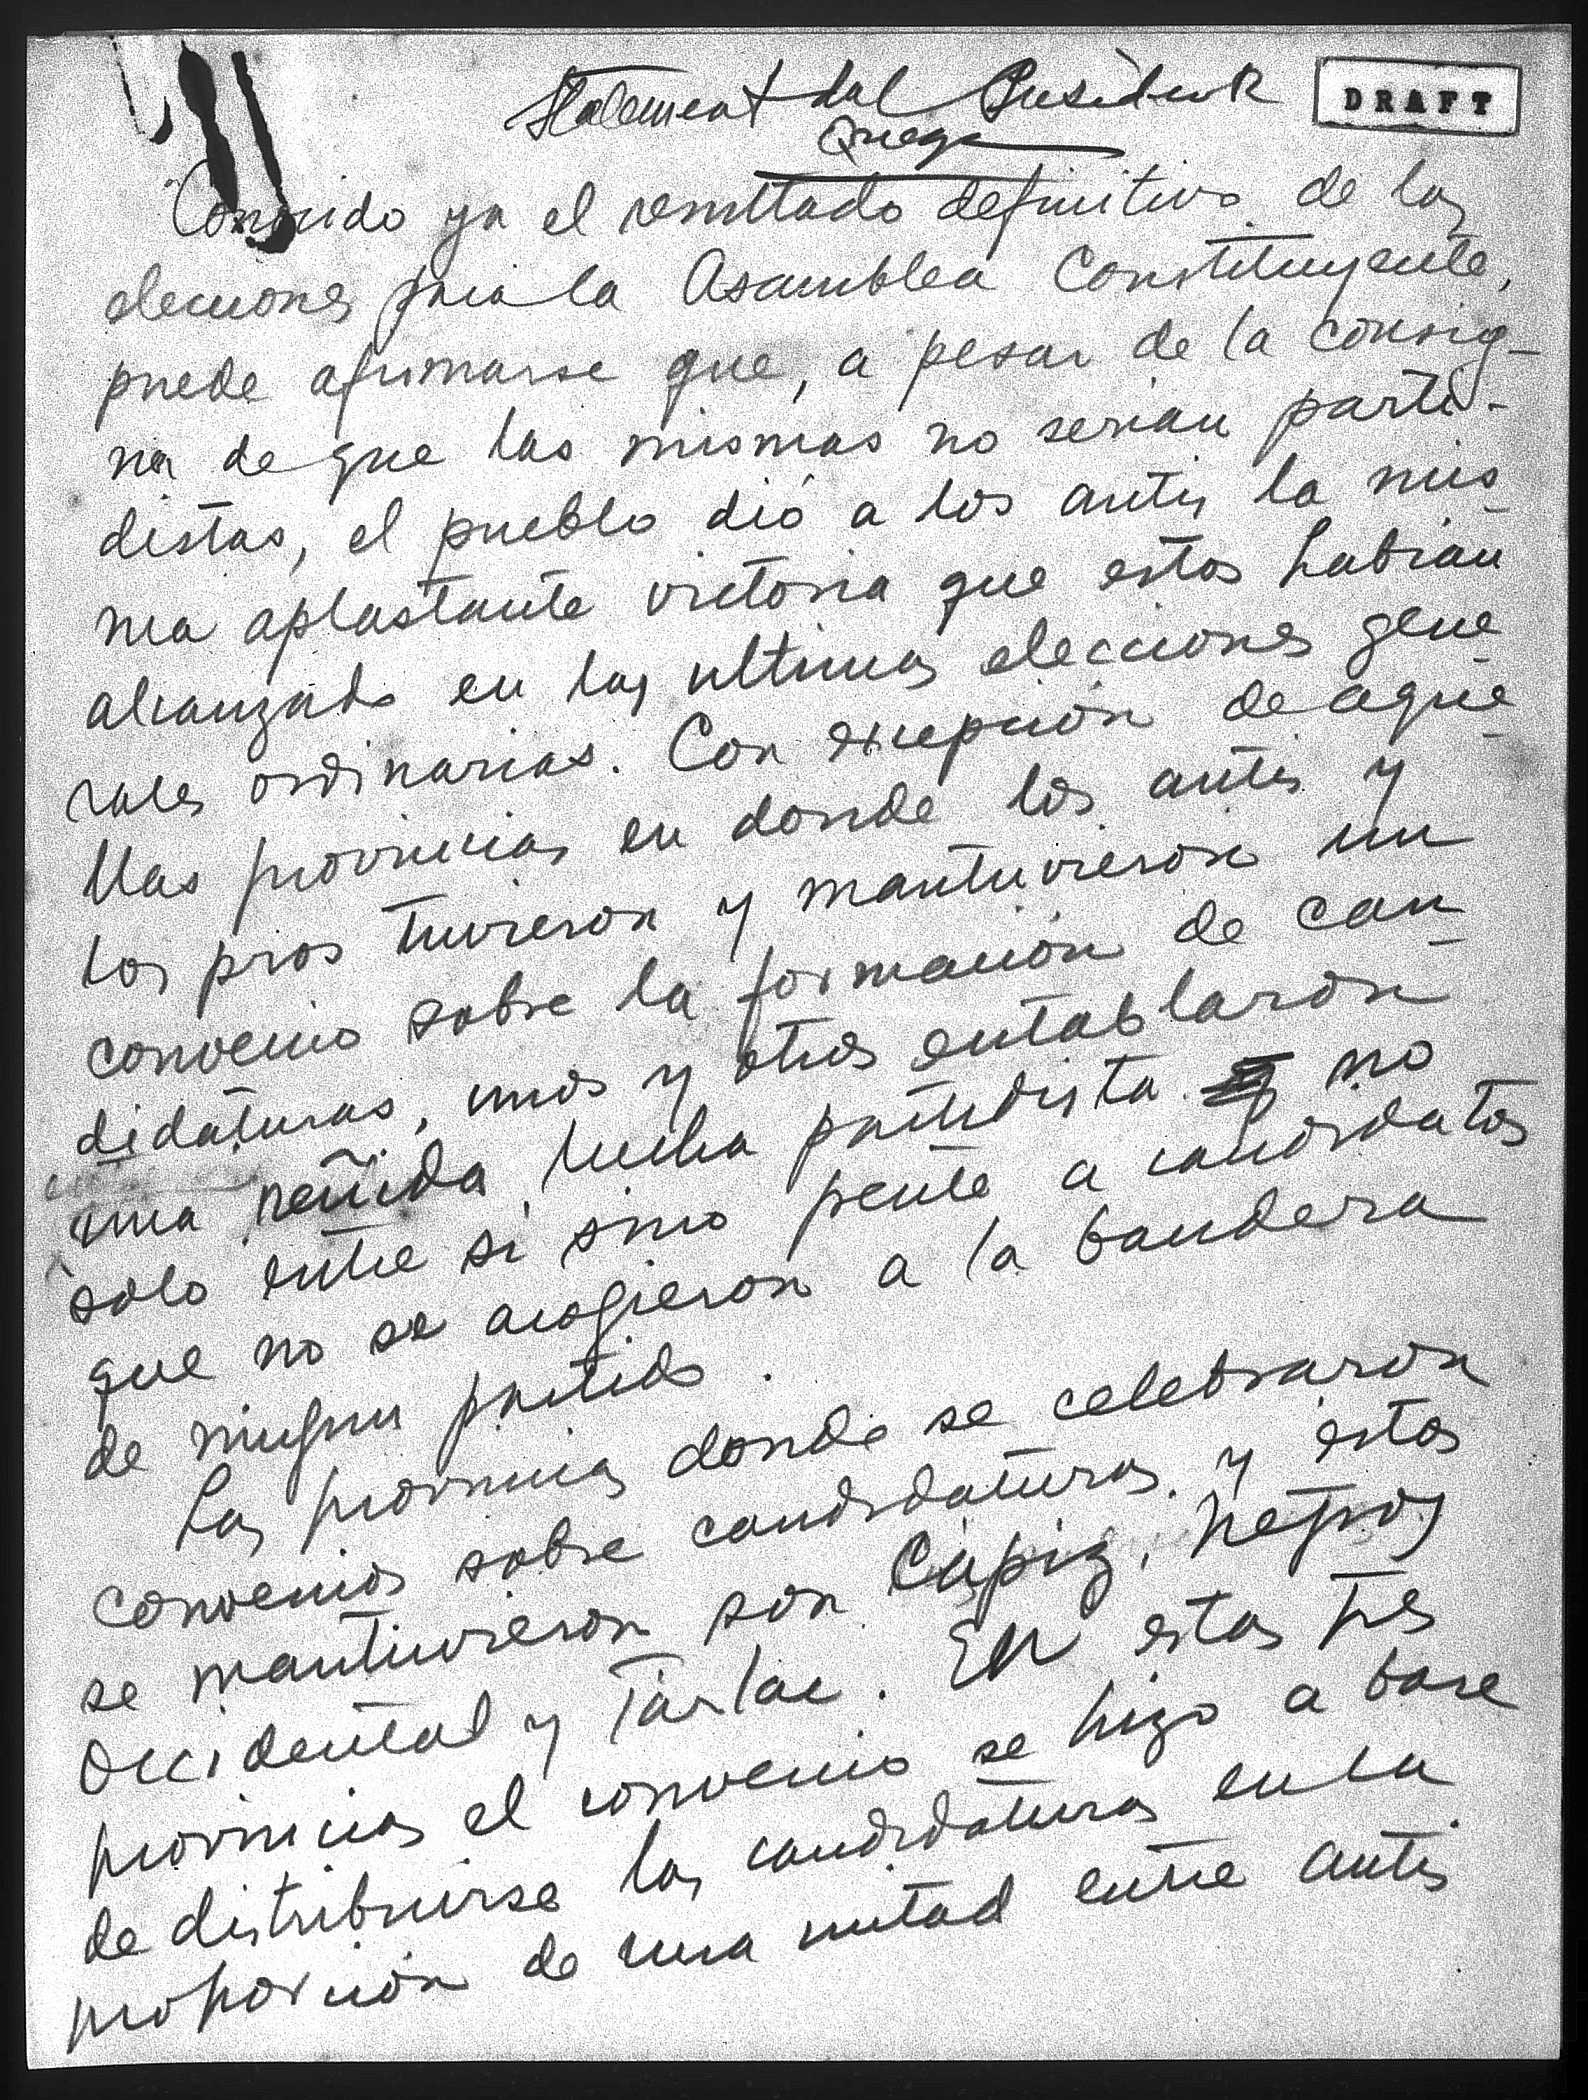 Statement del Presidente
DRAFT
Quezon
Conocido ya el resultado definitivo de las
elecciones para la Asamblea Constituyente,
puede afirmarse que, a pesar de la consig-
na de que las mismas no serian parti-
distas, el pueblo dió a los antis la mis
ma aplastante victoria que estos habian
alcanzado en las ultimas elecciones gene
rales ordinarias. Con excepción de aque
llas provincias en donde los antis y
los pros tuvieron y mantuvieron un
convenio sobre la formación de can
didaturas, unos y otros entablaron
una reñida lucha partidista no
solo entre si sino frente a candidatos
que no se acogieron a la bandera
de ningun partido.
Las provincias donde se celebraron
convenios sobre candidaturas y estos
se mantuvieron son Cápiz, Negros
Occidental y Tarlac. En estas tres
provincias el convenio se hizo a base
de distribuirse las candidaturas en la
proporción de una mitad entre antis